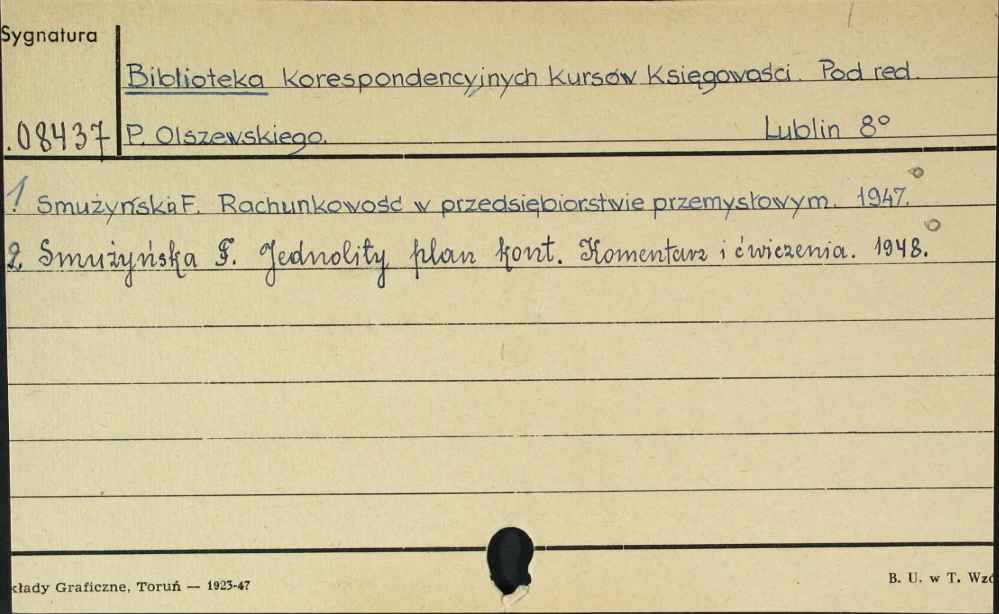 Sygnatura
Biblioteka korespondencyjnych Kursów Księgowości. Pod red.
.08437 P. Olszewskiego. Lublin 8°
1. Smużyńska F. Rachunkowość w przedsiębiorstwie przemysłowym. 1947.
2. Smużyńska F. Jednolity plan kont. Komentarz i ćwiczenia. 1948.
kłady Graficzne, Toruń — 1923-47
B. U. w T. Wzó